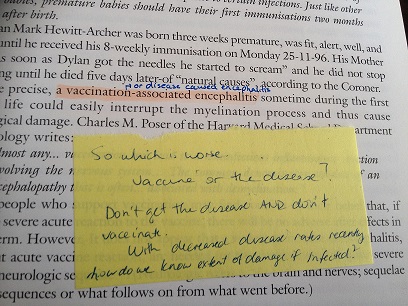 babies, premature babies should have their first immunisations two months
after birth.
an Mark Hewitt-Archer was born three weeks premature, was fit, alert, well, and
until he received his 8-weekly immunisation on Monday 25-11-96. His Mother
s soon as Dylan got the needles he started to scream" and he did not stop
ng until he died five days later of "natural causes", according to the Coroner.
nor disease caused encephalitis
e precise, a vaccination-associated encephalitis sometime during the first
life could easily interrupt the myelination process and thus cause
gical damage. Charles M. Poser of the Harvard Medical School Department
ology writes:
lmost any...
volving the
cephalopathy
people who
severe acute
rm. Howeve
t acute vacci
severe
neurologic se
to the brain and nerves; sequelae
sequences or what follows on from what went before.)
that, if
ffects in
halitis,
So which is worse.....
Vaccine or the disease?
Don't get the disease AND don't
vaccinate.
With decreased disease rates recently
how do we know extent of damage if infected?